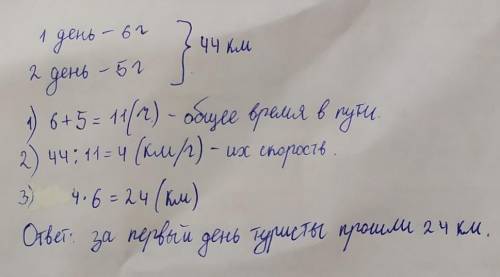 1 день – 6 г
2 день – 5 г } 44 км
1) 6 + 5 = 11 (г) – общее время в пути.
2) 44 : 11 = 4 (км/г) – их скороств.
3) 4 · 6 = 24 (км)
Ответ: за первый день туристы прошли 24 км.